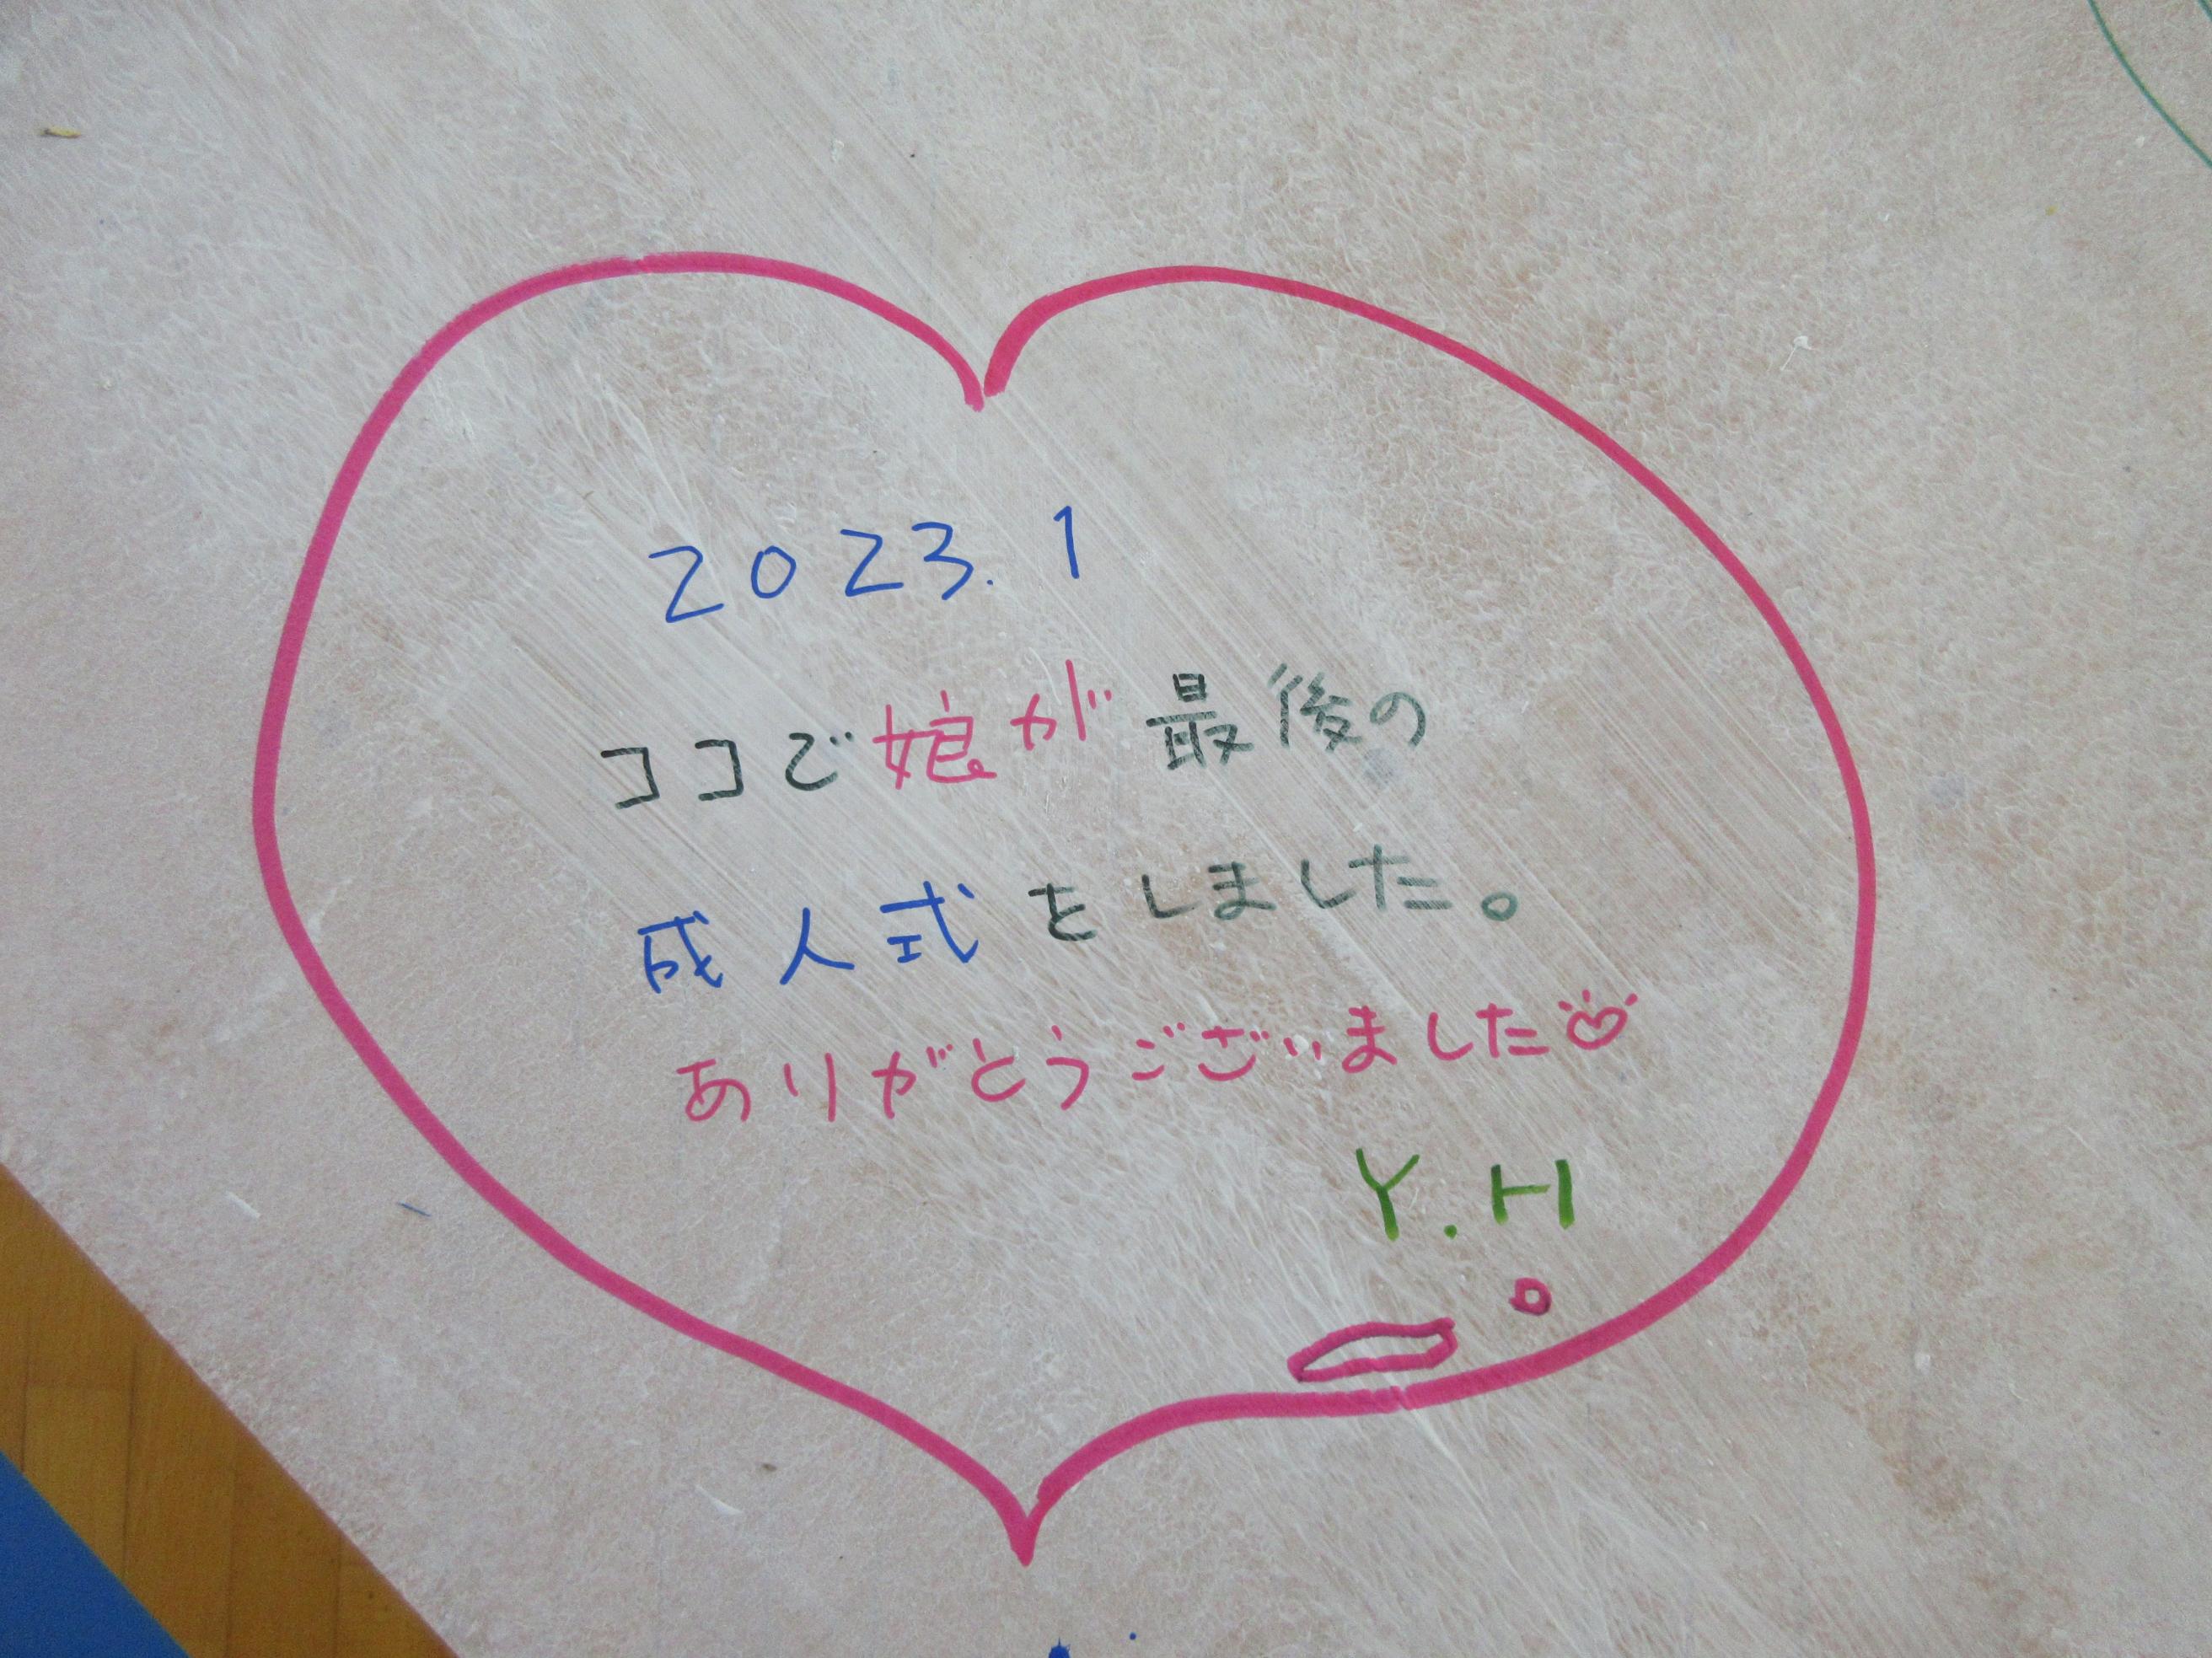 2023.1
ココで娘が最後の
成人式をしました。
ありがとうございました♡
Y.H